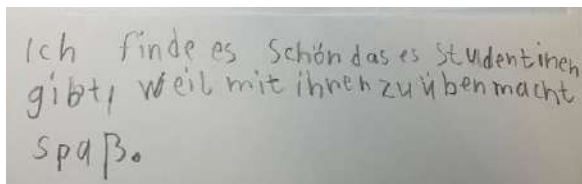 Ich finde es schön das es studentinen
gibt, weil mit ihnen zu üben macht
spaß.